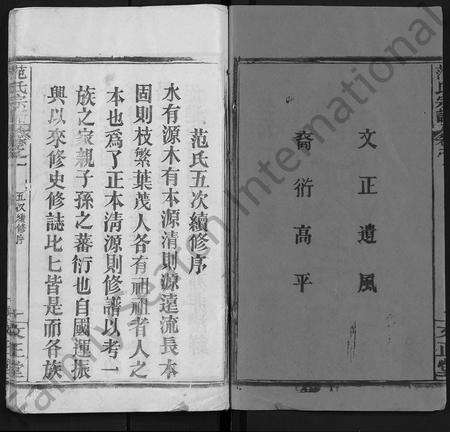 文正遺風
裔衍高平
文正堂
范氏五次續修序
水有源木有本源清則源遠流長本
固則枝繁葉茂人各有祖祖者人之
本也爲了正本清源則修譜以考一
族之家親子孫之蕃衍也自國運振
興以來修史修誌比匕皆是而各族
范氏宗譜
卷之一
五次續修序
文正堂
FamilySearch International